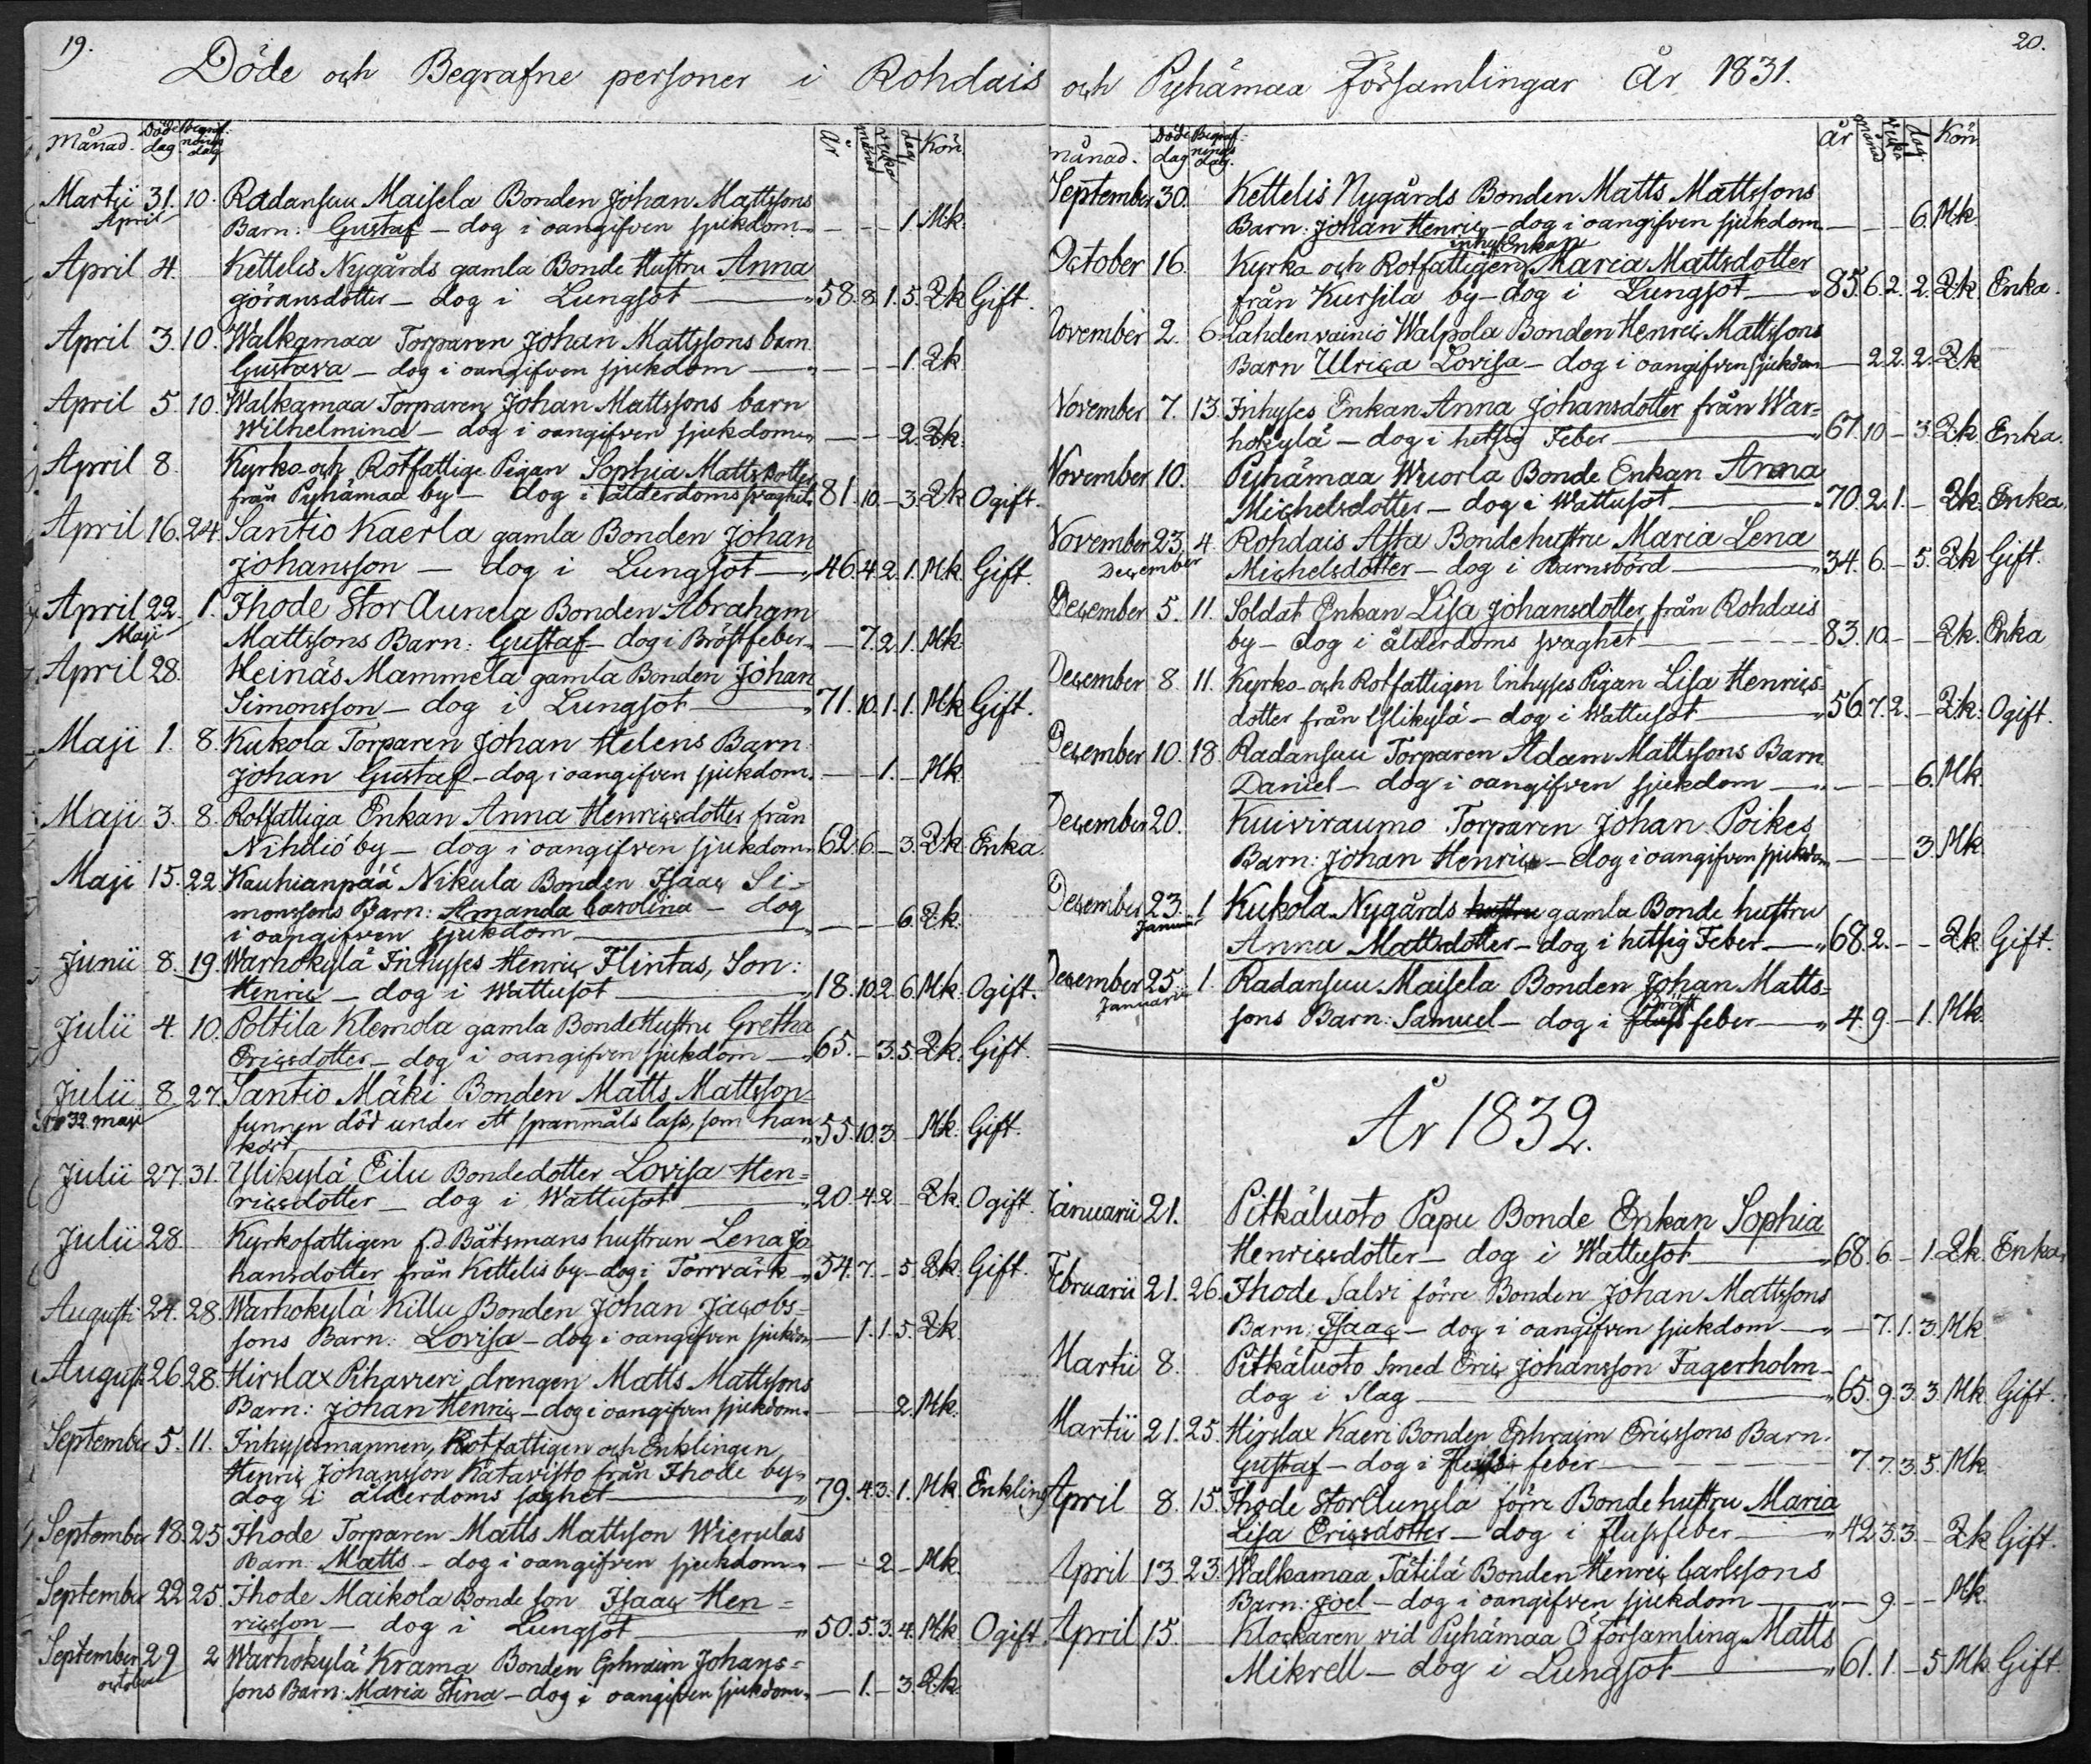 19.
Döde och Begrafne personer i Rohdais
Månad. Döde dag. Begrafnings dag År månad vecka dag Kön.
Martii 31. 10. Radansuu Maisela Bonden Johan Mattssons
April Barn: Gustaf — dog i oangifven sjukdom — — — 1. Mk.
April 4. Kettelis Nygårds gamla Bonde Hustru Anna
göransdotter — dog i Lungsot — 58. 8. 1. 5. Qk Gift.
April 3. 10. Walkamaa Torparen Johan Mattssons barn
Gustava — dog i oangifven sjukdom — — — 1. Qk
April 5. 10. Walkamaa Torparen Johan Mattssons barn
Wilhelmina — dog i oangifven sjukdom — — — 2. Qk.
April 8. Kyrko och Rotfattige Pigan Sophia Mattsdotter
från Pyhämaa by — dog i ålderdoms svaghet 81. 10. — 3. Qk Ogift.
April 16. 24. Santio Kaerla gamla Bonden Johan
Johansson — dog i Lungsot — 46. 4. 2. 1. Mk. Gift.
April 22. 1. Ihode Stor Aunela Bonden Abraham
Maji Mattssons Barn: Gustaf — dog i Bröstfeber — 7. 2. 1. Mk.
April 28. Heinäs Mammela gamla Bonden Johan
Simonsson — dog i Lungsot — 71. 10. 1. 1. Mk Gift.
Maji 1. 8. Kukola Torparen Johan Helens Barn
Johan Gustaf — dog i oangifven sjukdom. — — 1. — Mk.
Maji 3. 8. Rotfattiga Enkan Anna Henricsdotter från
Nihdiö by — dog i oangifven sjukdom 62. 6. — 3. Qk Enka.
Maji 15. 22 Kauhianpää Nikula Bonden Isaac Si-
monssons Barn: Amanda Carolina — dog
i oangifven sjukdom — — — 6. Qk.
Junii 8. 19. Warhokylä Inhyses Henric Flintas, Son:
Henric — dog i Wattusot — 18. 10. 2. 6. Mk. Ogift.
Julii 4. 10. Poltila Klemola gamla Bonde Hustru Gretha
Ericsdotter — dog i oangifven sjukdom — 65. — 3. 5. Qk. Gift.
Julii 8. 27. Santio Mäki Bonden Matts Mattsson
32. maji funnen död under ett spanmåls lass, som han
kört 55. 10. 3. — Mk. Gift.
Julii 27. 31. Ylikylä Eilu Bondedotter Lovisa Hen-
ricsdotter — dog i Wattusot — 20. 4. 2. Qk. Ogift.
Julii 28. Kyrkofattigen f.d Båtsmans hustrun Lena Jo
hansdotter från Kettelis by — dog i Torrvärk — 54. 7. — 5 Qk. Gift.
Augusti 24. 28. Warhokylä Killu Bonden Johan Jacobs-
sons Barn: Lovisa — dog i oangifven sjukdom — 1. 1. 5. Qk.
August 26. 28. Hirslax Pihavieri drengen Matts Mattssons
Barn: Johan Henric — dog i oangifven sjukdom. — — — 2. Mk.
September 5. 11. Inhysesmannen, Rotfattigen och Enklingen
Henric Johansson Katavisto från Ihode by
dog i ålderdoms 79. 4. 3. 1. Mk. Enkling
September 18. 25. Ihode Torparen Matts Mattsson Wierulas
Barn: Matts — dog i oangifven sjukdom — — 2 — Mk.
September 22. 25. Ihode Maikola Bonde son Isaac Hen-
ricsson — dog i Lungsot — 50. 5. 3. 4. Mk Ogift.
September 29 2 Warhokylä Krama Bonden Ephraim Johans-
october sons Barn: Maria Stina — dog i oangifven sjukdom. — 1. — 3. Qk.
20.
och Pyhämaa Församlingar År 1831.
månad. Döde dag Begrafnings dag. År månad vecka dag Kön
September 30. Kettelis Nygårds Bonden Matts Mattssons
Barn: Johan Henric — dog i oangifven sjukdom — — — 6. Mk.
October 16. Kyrko och Rotfattigen inhyses Enkan Maria Mattsdotter
från Kursila by — dog i Lungsot — 85. 6. 2. 2. Qk. Enka.
November 2. 6. Lahdenvainio Walpola Bonden Henric Mattssons
Barn Ulrica Lovisa — dog i oangifven sjukdom — 2. 2. 2. Qk
November 7. 13. Inhyses Enkan Anna Johansdotter från War-
hokylä — dog i hetsig Feber — 67. 10 — 3. Qk. Enka.
November 10. Pyhämaa Wuorla Bonde Enkan Anna
Michelsdotter — dog i Wattusot — 70. 2. 1. — Qk. Enka.
November 23. 4. Rohdais Assa Bondehustru Maria Lena
December Michelsdotter — dog i Barnsbörd — 34. 6. — 5. Qk Gift.
December 5. 11. Soldat Enkan Lisa Johansdotter från Rohdais
by — dog i ålderdoms svaghet — 83. 10. — — Qk. Enka
December 8. 11. Kyrko- och Rotfattigen Inhyses Pigan Lisa Henrics-
dotter från Ylikylä — dog i Wattusot — 56. 7. 2. — Qk. Ogift.
December 10. 18. Radansuu Torparen Adam Mattssons Barn
Daniel — dog i oangifven sjukdom — — — — 6. Mk.
December 20. Kuiviraumo Torparen Johan Poikes
Barn: Johan Henric — dog i oangifven sjukdom — — — 3. Mk
December 23. 1 Kukola Nygårds hustru gamla Bonde hustru
Januarii Anna Mattsdotter — dog i hetsig Feber — 68. 2. — — Qk Gift.
December 25. 1. Radansuu Maisela Bonden Johan Matts-
Januarii sons Barn: Samuel — dog i fluss Bröst feber — 4. 9. — 1. Mk.
År 1832.
Januarii 21. Pitkäluoto Papu Bonde Enkan Sophia
Henricsdotter — dog i Wattusot — 68. 6 — 1. Qk. Enka
Februarii 21. 26. Ihode Salvi förre Bonden Johan Mattssons
Barn: Isaac — dog i oangifven sjukdom — — 7. 1. 3. Mk
Martii 8. Pitkäluoto Smed Eric Johansson Fagerholm —
dog i Slag — 65. 9. 3. 3. Mk Gift.
Martii 21. 25. Hirslax Kaeri Bonden Ephraim Ericssons Barn.
Gustaf — dog i Fluss feber — 7. 7. 3. 5. Mk.
April 8. 15. Ihode StorAunela förre Bondehustru Maria
Lisa Ericsdotter — dog i flussfeber — 42. 3. 3. — Qk Gift.
April 13. 23. Walkamaa Tätilä Bonden Henric Carlssons
Barn: Joel — dog i oangifven sjukdom — — 9. — — Mk.
April 15. Klockaren vid Pyhämaa Ö församling Matts
Mikrell — dog i Lungsot — 61. 1. — 5 Mk Gift.